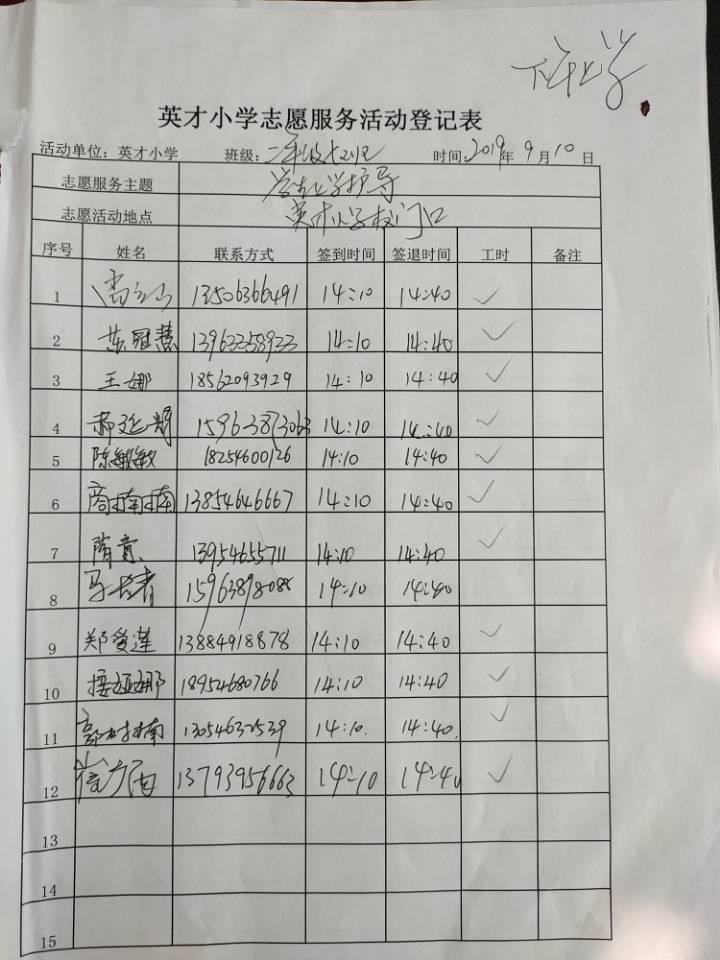 下午上学
英才小学志愿服务活动登记表
活动单位：英才小学 班级：二年级七班 时间：2019年9月10日
志愿服务主题 学生上学护导
志愿活动地点 英才小学校门口
序号 姓名 联系方式 签到时间 签退时间 工时 备注
1 13506366491 14:10 14:40 ✓
2 苏冠慧 13963358933 14:10 14:40 ✓
3 王娜 18562093929 14:10 14:40 ✓
4 郝延辉 15963873063 14:10 14:40 ✓
5 陈敏敏 18254600126 14:10 14:40 ✓
6 商楠楠 13854646667 14:10 14:40 ✓
7 隋意 13954655711 14:10 14:40 ✓
8 15963898088 14:10 14:40
9 郑爱莲 13884918878 14:10 14:40 ✓
10 接娅娜 18954680766 14:10 14:40 ✓
11 郭树楠 13054632539 14:10. 14:40. ✓
12 13793956663 14:10 14:40 ✓
13
14
15